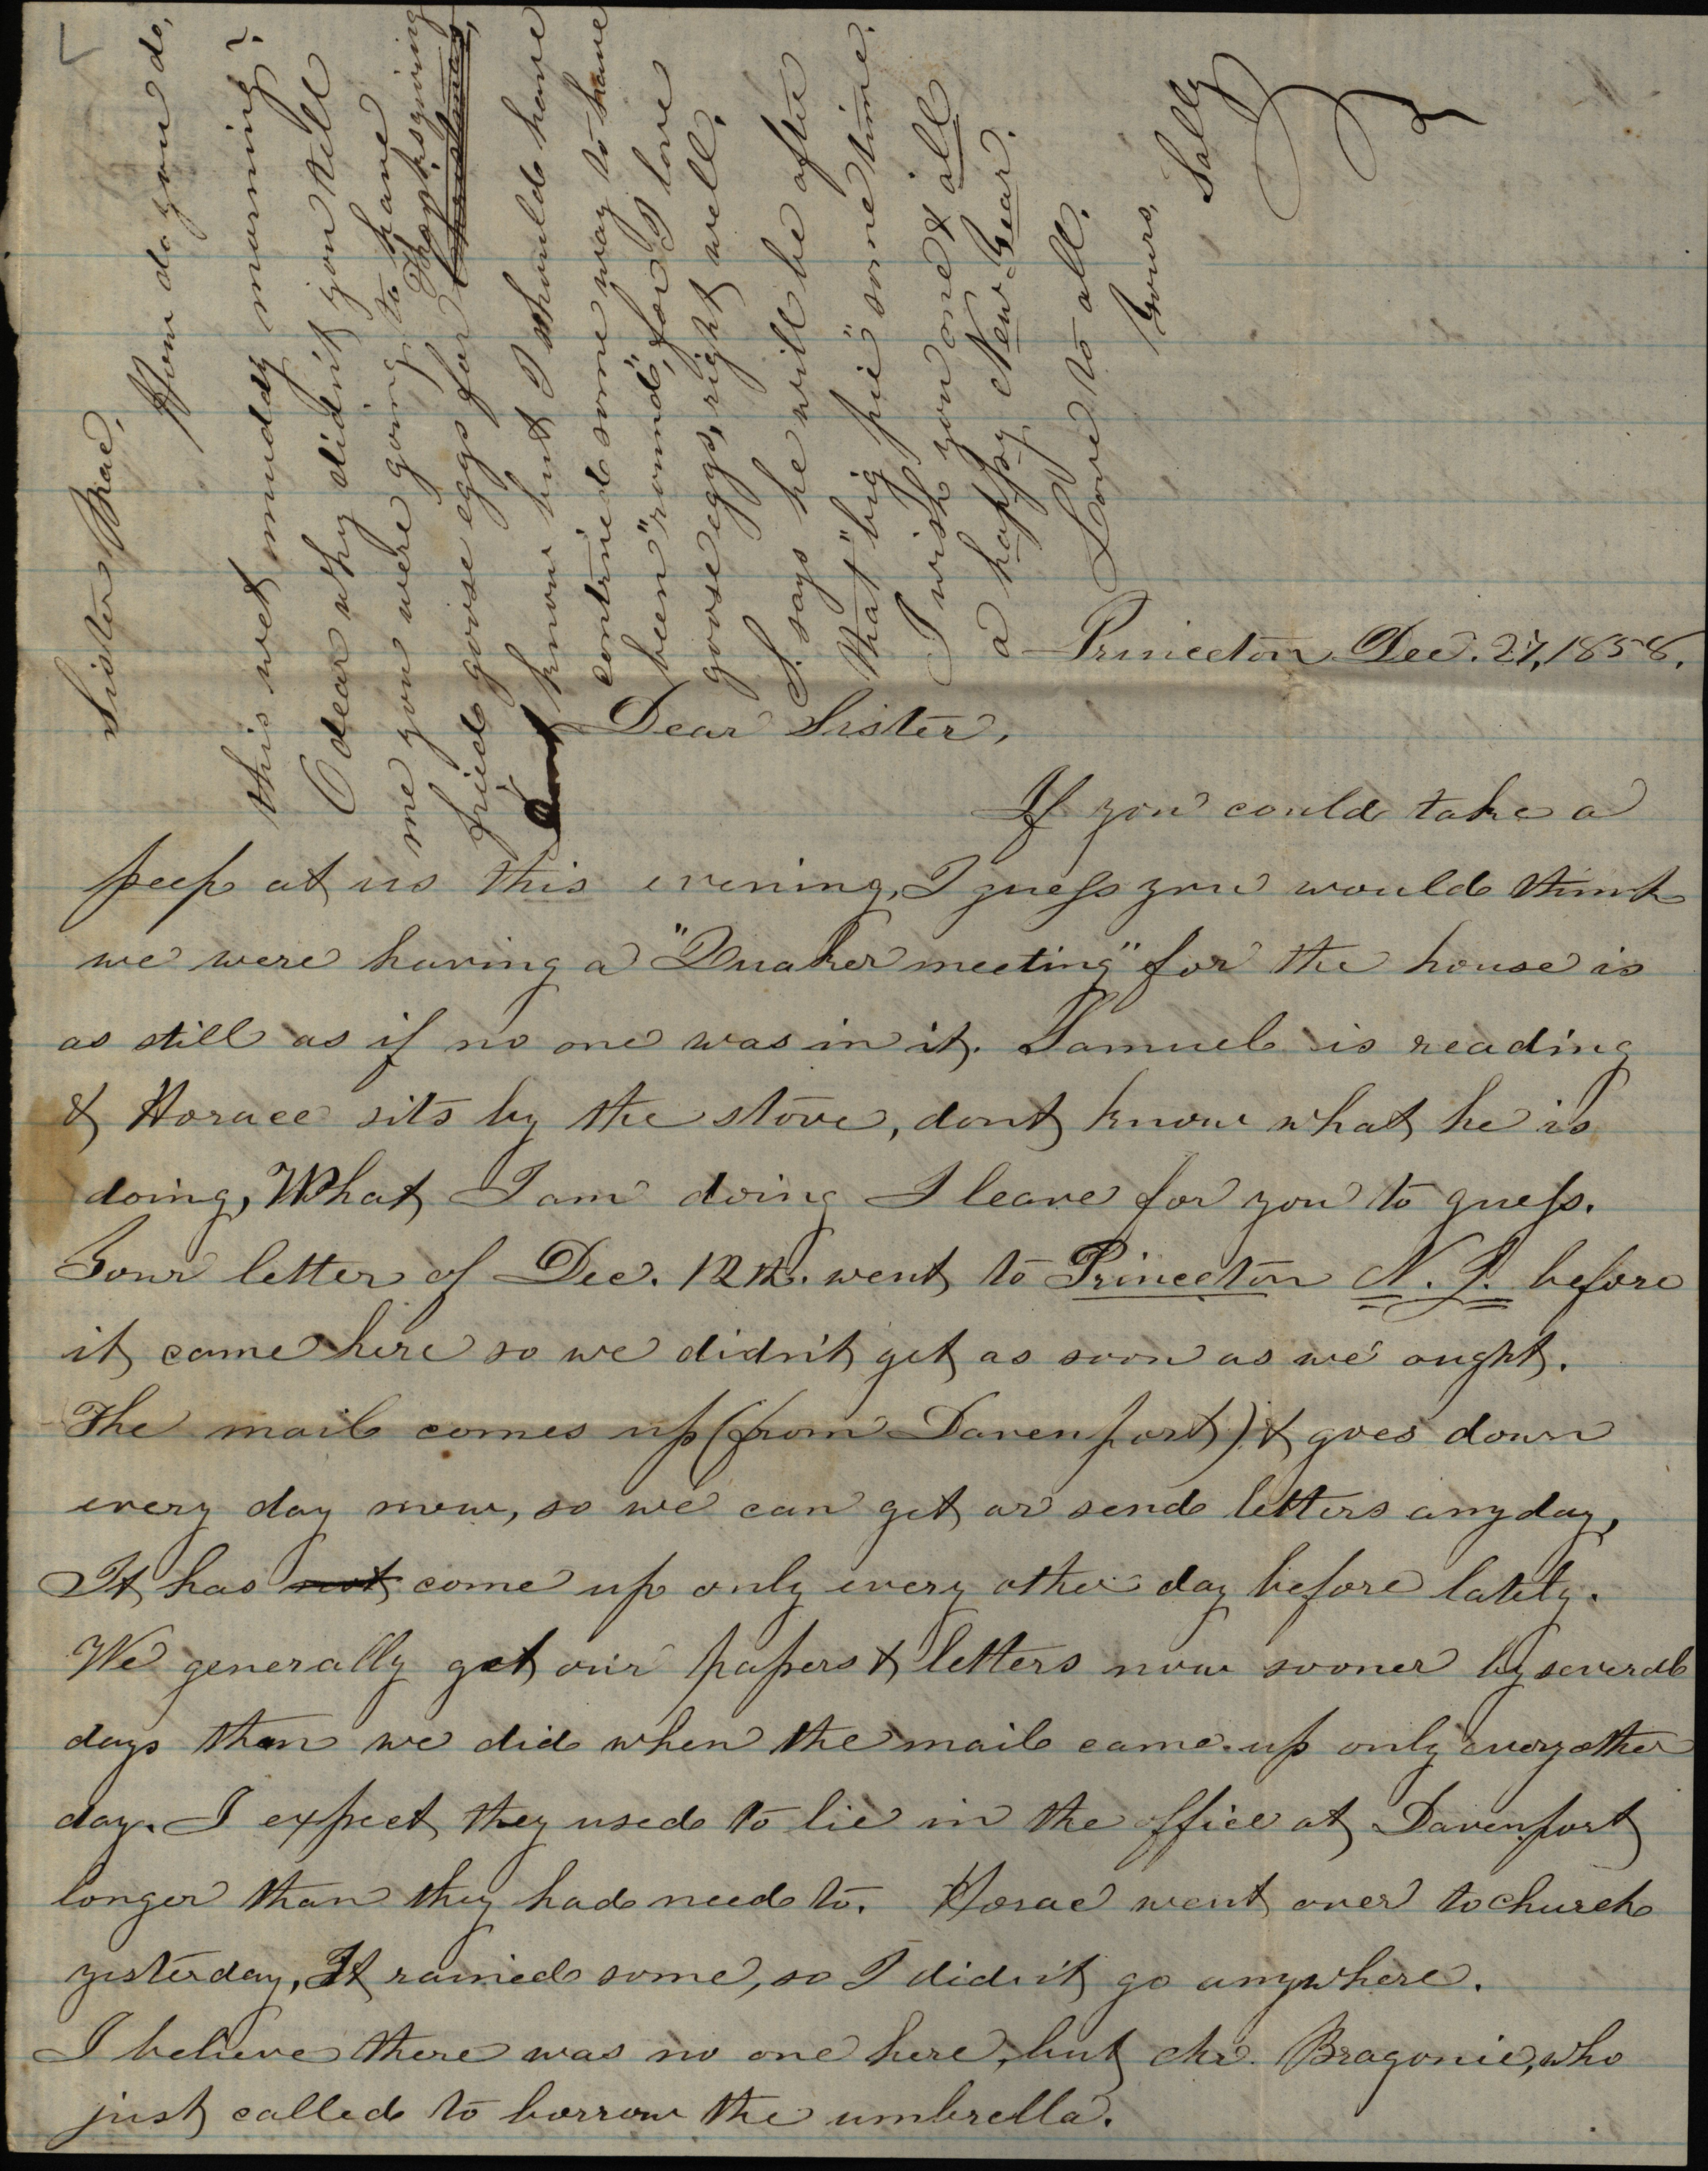 Princeton Dec. 27, 1858.
Dear Sister,
If you could take a
peep at us this evening, I guess you would think
we were having a "Quaker meeting" for the house is
as still as if no one was in it. Samuel is reading
& Horace sits by the stove, dont know what he is
doing, What I am doing I leave for you to guess.
Your letter of Dec. 12th. went to Princeton N. J. before
it came here so we didn't get as soon as we ought.
The mail comes up (from Davenport) & goes down
every day now, so we can get or send letters any day,
It has not come up only every other day before lately.
We generally get our papers & letters now sooner by several
days than we did when the mail came up only every other
day. I expect they used to lie in the office at Davenport
longer than they had need to. Horac went over to church
yesterday, It rained some, so I didn't go anywhere.
I believe there was no one here, but Mr. Bragonie, who
just called to borrow the umbrella.
Sister Mae,
How do you do,
this wet muddy morning?
O dear why didn't you tell
me you were going to have
fried goose eggs for Christmas, Thanksgiving
know but I should have
contrived some way to have
been "round", for I love
goose eggs, right well.
S. says he will be after
that "big pie" some time.
I wish you one & all
a happy New Year.
Love to all.
Yours,
Sally